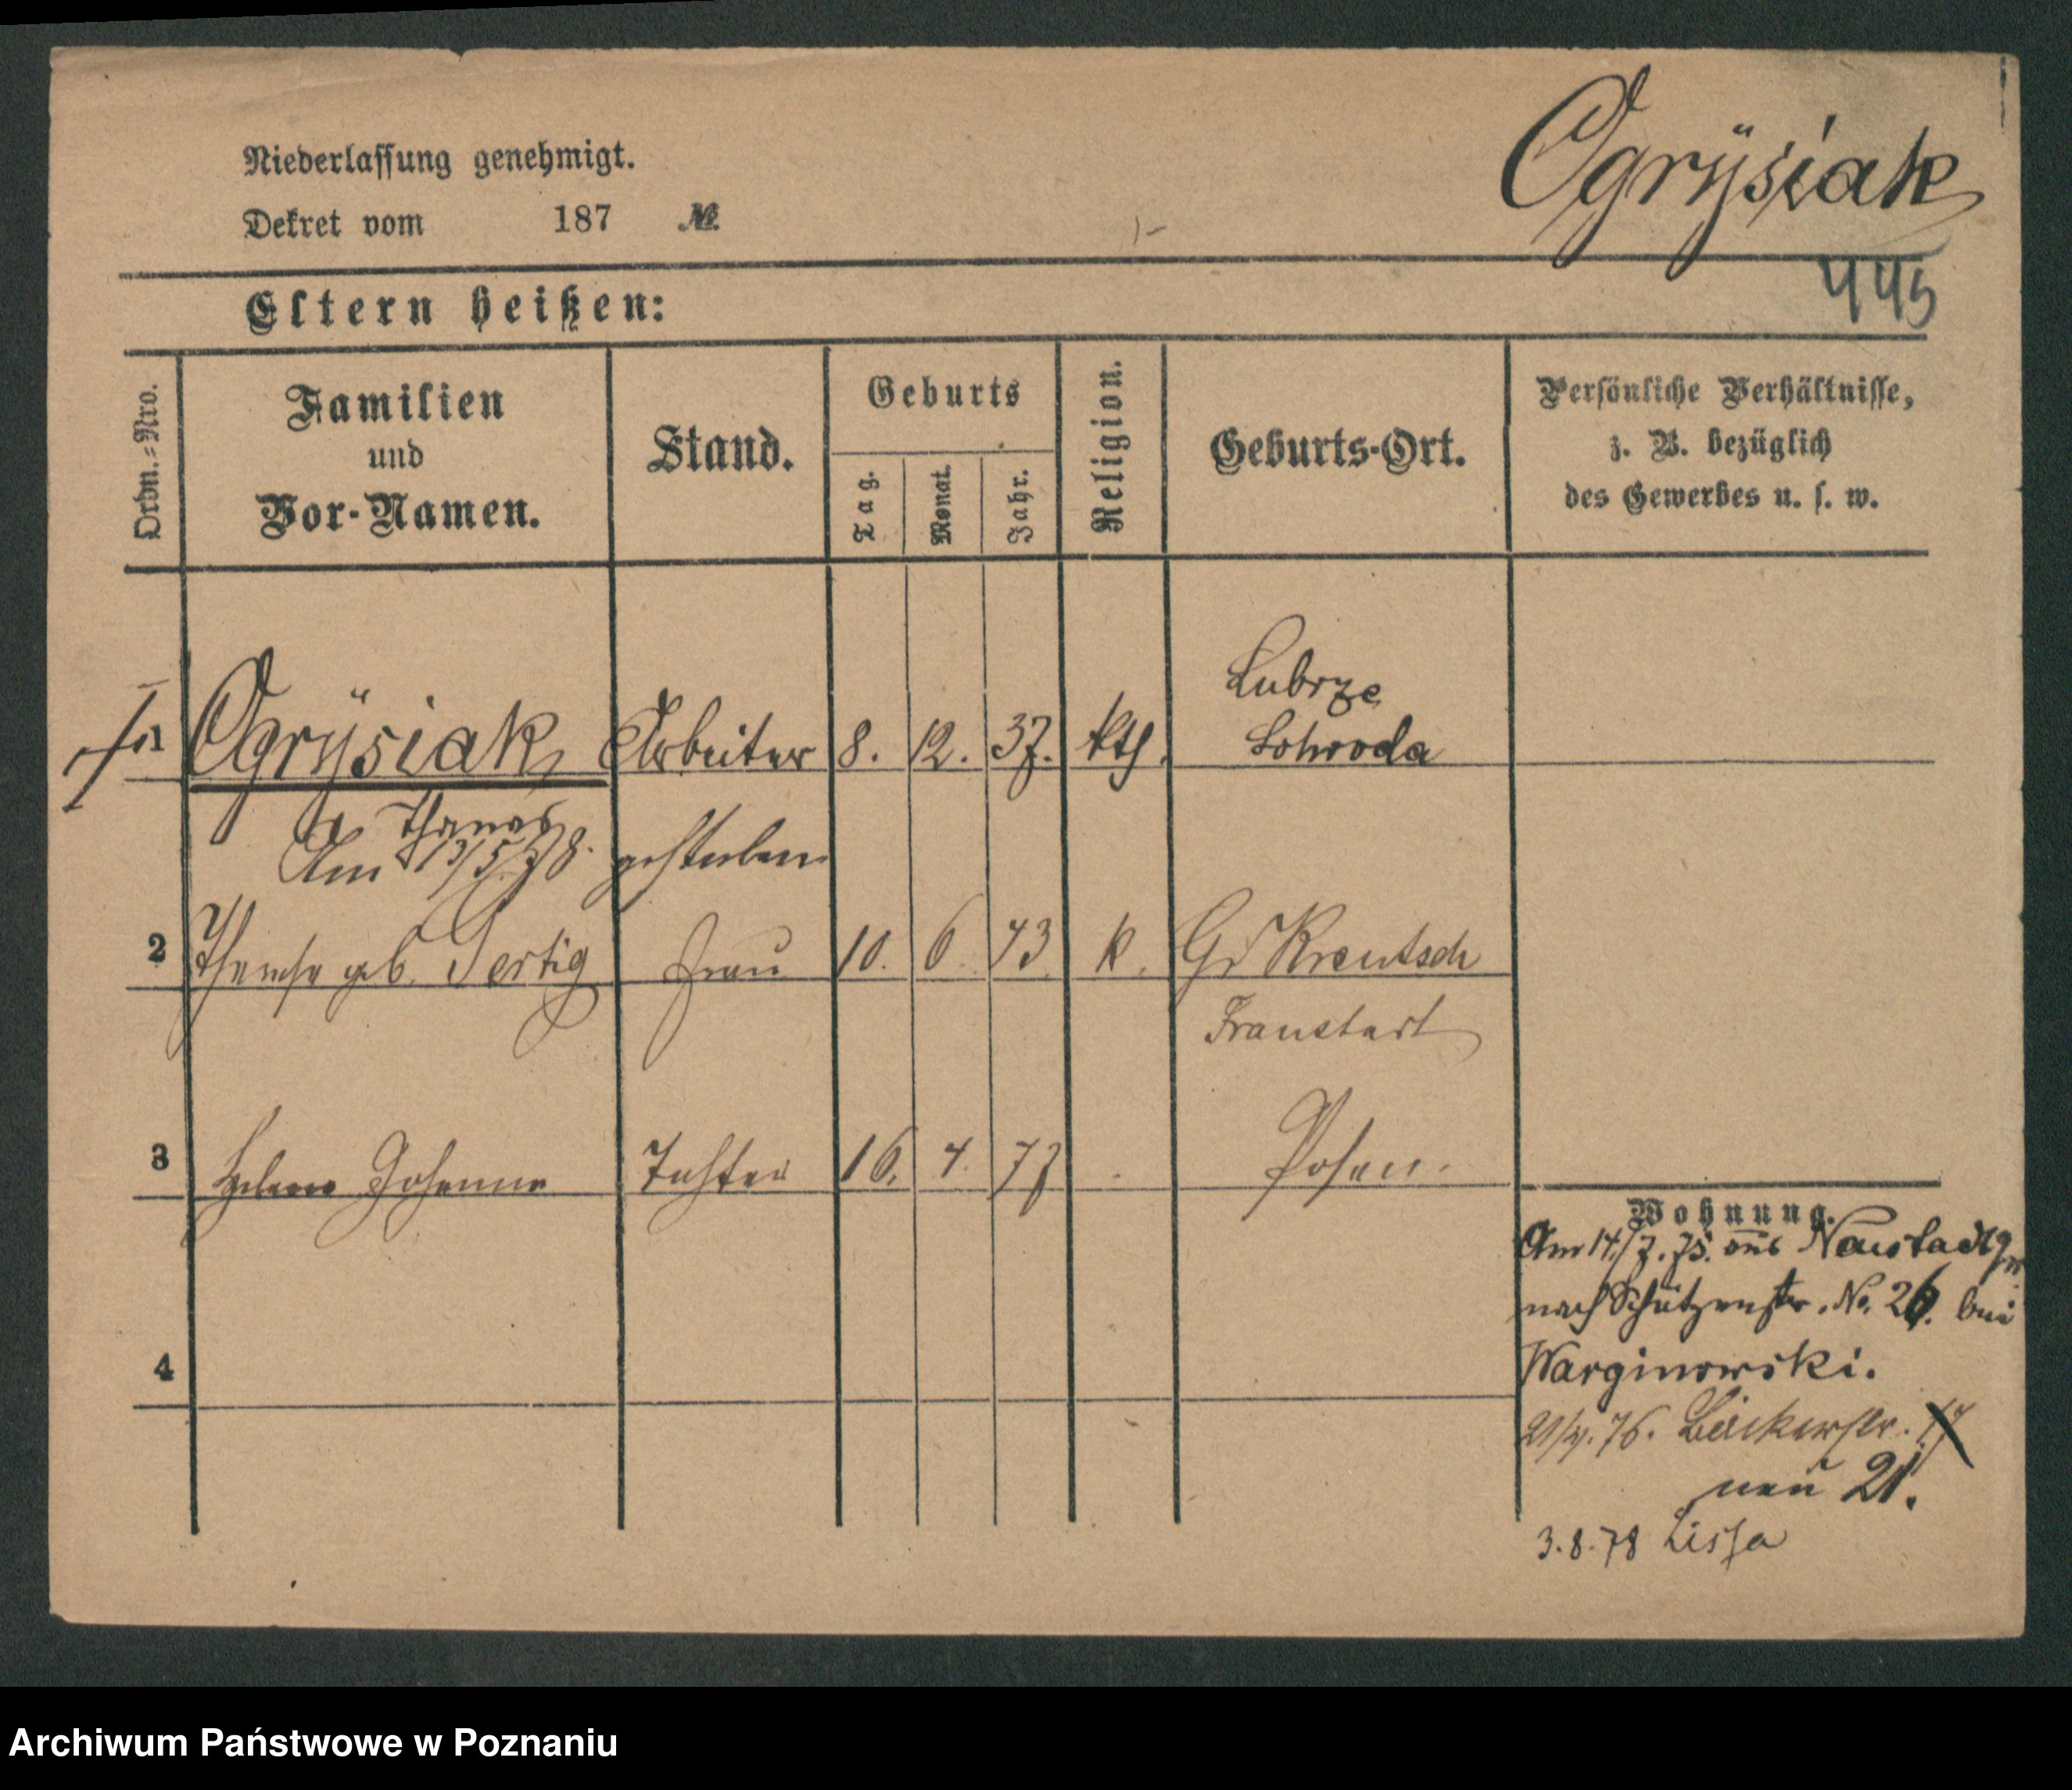 Niederlassung genehmigt.
Dekret vom 187 №
Ogrÿsiak
445
Eltern heißen:
Ordn.-Nro.
Familien
und
Vor-Namen.
Stand.
Geburts
Tag.
Monat.
Jahr.
Religion.
Geburts-Ort.
Persönliche Verhältnisse,
z. B. bezüglich
des Gewerbes u. s. w.
Lubrze
1 Ogrÿsiak Arbeiter 8. 12. 37. kth. Schroda
Thomas
Am 13/5.78. gestorben
2 geb. Frau 10. 6 43 k. Gr Kreutsch
Fraustadt
3 Johanna Tochter 16. 4. 77 Posen.
Wohnung.
Am 14/7.75. aus
nach Schützenstr. No. 26. bei
Warginowski.
76. Bäckerstr. 17
neu 21.
3.8.78 Lissa
4
Archiwum Państwowe w Poznaniu